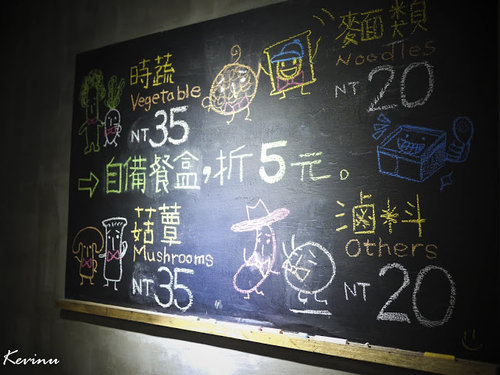 時蔬
Vegetable
NT 35
麵麵類
Noodles
NT 20
自備餐盒，折5元。
菇蕈
Mushrooms
NT 35
滷料
Others
NT 20
Kevinu